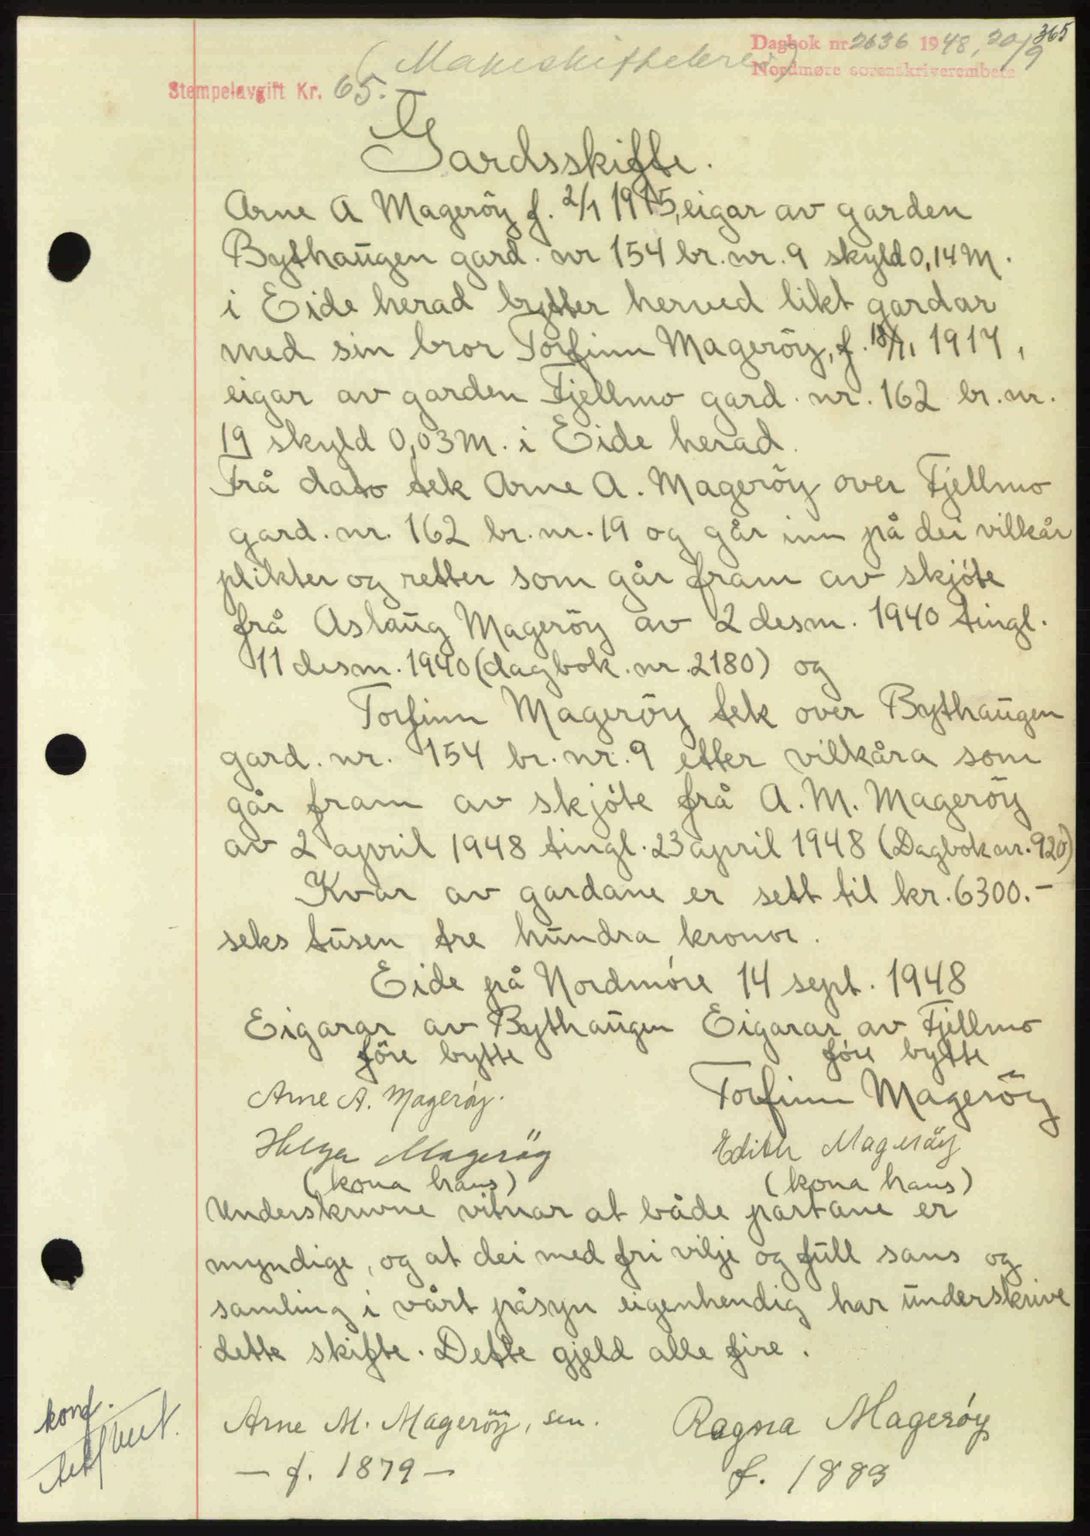 365
Dagbok nr. 2636 1948, 20/9
Nordmøre sorenskriverembete
(Makeskiftebrev)
Stempelavgift Kr. 65.-
Gardsskifte.
Arne A Mageröy f. 2/1 1915, eigar av garden
Bythaugen gard. nr 154 br. nr. 9 skyld 0,14 M.
i Eide herad bytter herved likt gardar
med sin bror Torfinn Mageröy, f. 18/11 1917,
eigar av garden Fjellmo gard. nr. 162 br. nr.
19 skyld 0,03 M. i Eide herad.
Frå dato tek Arne A. Mageröy over Fjellmo
gard. nr. 162 br. nr. 19 og går inn på dei vilkår
plikter og retter som går fram av skjöte
frå Aslaug Mageröy av 2 desm. 1940 tingl.
11 desm. 1940 (dagbok. nr. 2180) og
Torfinn Mageröy tek over Bythaugen
gard. nr. 154 br. nr. 9 etter vilkåra som
går fram av skjöte frå A. M. Mageröy
av 2 april 1948 tingl. 23 april 1948 (Dagbok nr. 920)
Kvar av gardane er sett til kr. 6300.-
seks tusen tre hundra kronor.
Eide på Nordmöre 14 sept. 1948
Eigarar av Bythaugen Eigarar av Fjellmo
före bytte före bytte
Arne A. Magerøy. Torfinn Mageröy
Helga Mageröy Edith Mageröy
(kona hans) (kona hans)
Underskrivne vitnar at både partane er
myndige, og at dei med fri vilje og full sans og
samling i vårt påsyn eigenhendig har underskrive
dette skifte. Dette gjeld alle fire.
konf.
Arne M. Mageröy, sen. Ragna Magerøy
- f. 1879 - f. 1883